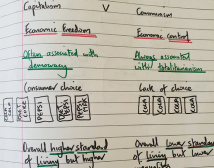 Capitalism V Communism
Economic Freedom Economic control
Often associated with Always associated
democracy with totalitarianism
Consumer choice Lack of choice
PEPSI PEPSI COLA COLA COLA COLA
Overall higher standard Overall lower standard
of living but higher of living but lower